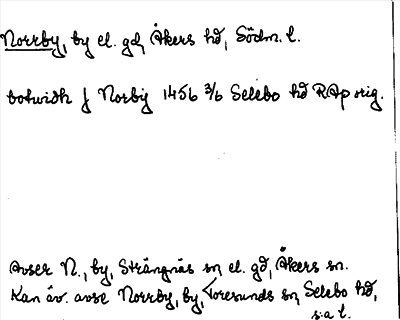 Norrby, by el. gd, Åkers hd, Södm. l.
botwidh j Norby 1456 3/6 Selebo hd RAp orig.
Avser N., by, Strängnäs sn el. gd, Åkers sn.
Kan äv. avse Norrby, by, Toresunds sn, Selebo hd,
s:a l.